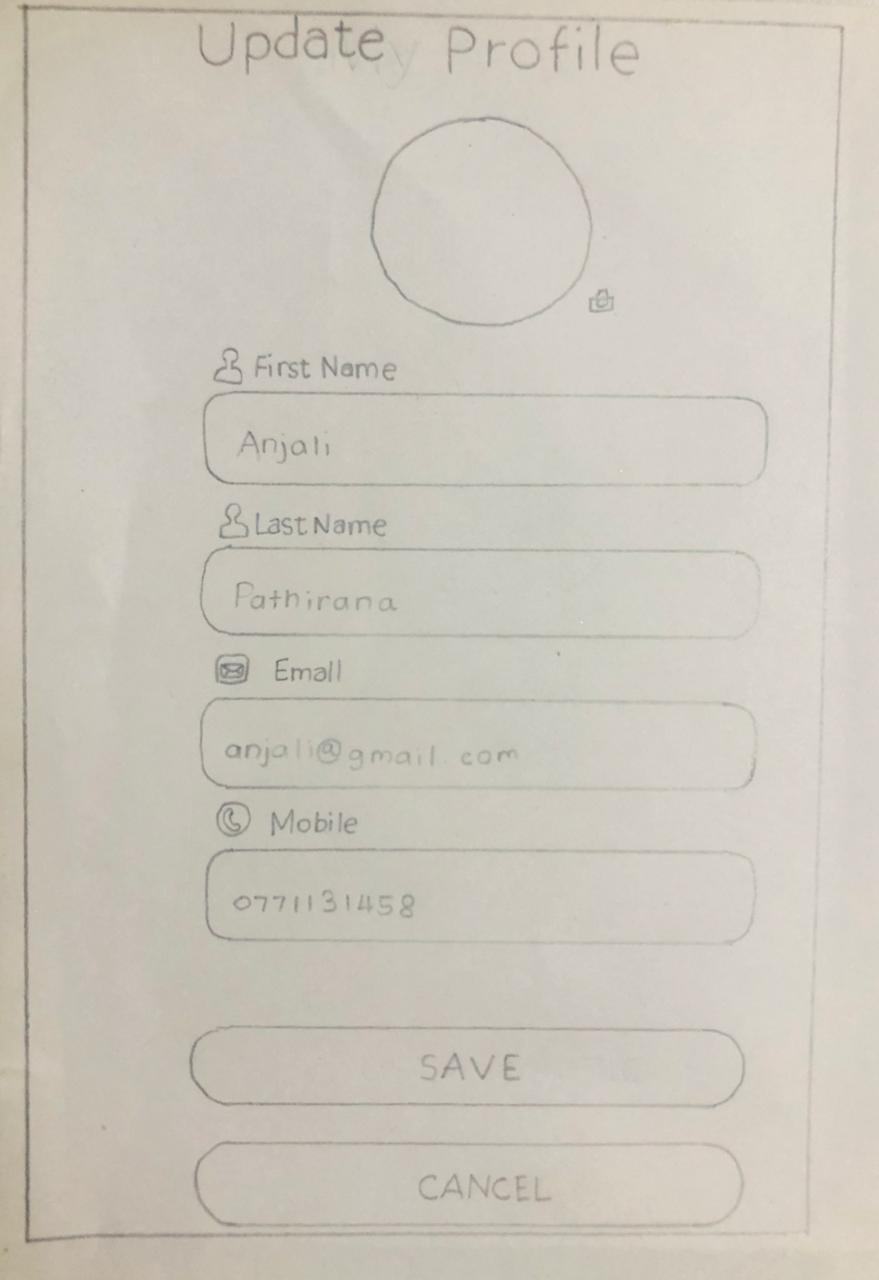 Update Profile
First Name
Anjali
Last Name
Pathirana
Email
anjali@gmail.com
Mobile
0771131458
SAVE
CANCEL